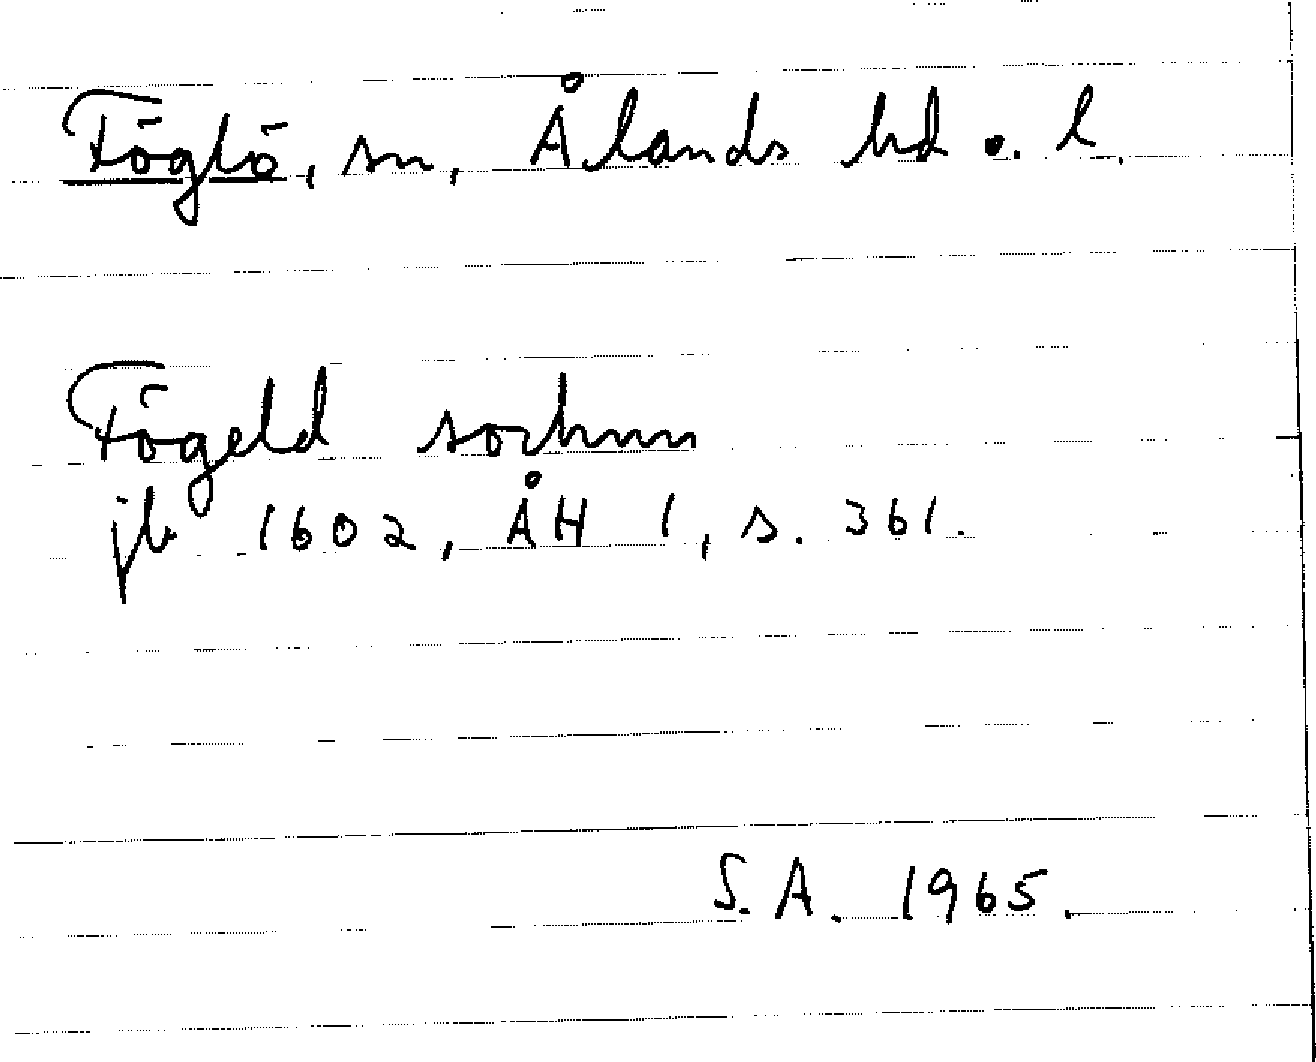 Föglö, sn, Ålands hd o. l.
Fögeld sochnn
jb 1602, ÅH 1, s. 361.
S.A. 1965.